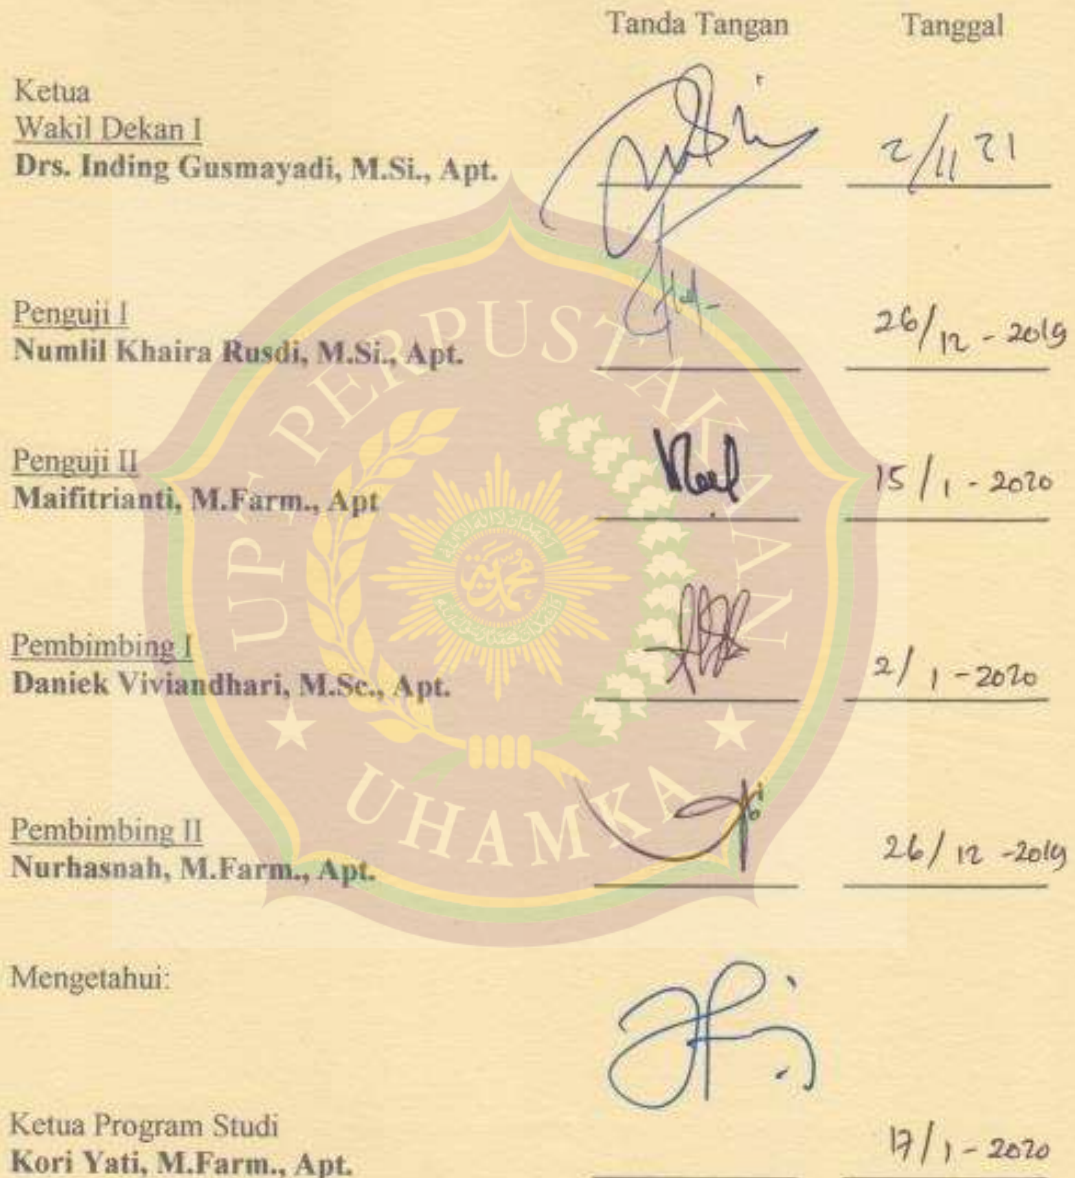 Tanda Tangan Tanggal
Ketua
Wakil Dekan I
Drs. Inding Gusmayadi, M.Si., Apt. 2/11 21
Penguji I
Numlil Khaira Rusdi, M.Si., Apt. 26/12 - 2019
Penguji II
Maifitrianti, M.Farm., Apt 15/1 - 2020
Pembimbing I
Daniek Viviandhari, M.Sc., Apt. 2/1 - 2020
Pembimbing II
Nurhasnah, M.Farm., Apt. 26/12 - 2019
Mengetahui:
Ketua Program Studi
Kori Yati, M.Farm., Apt. 17/1 - 2020
UPT PERPUSTAKAAN
UHAMKA